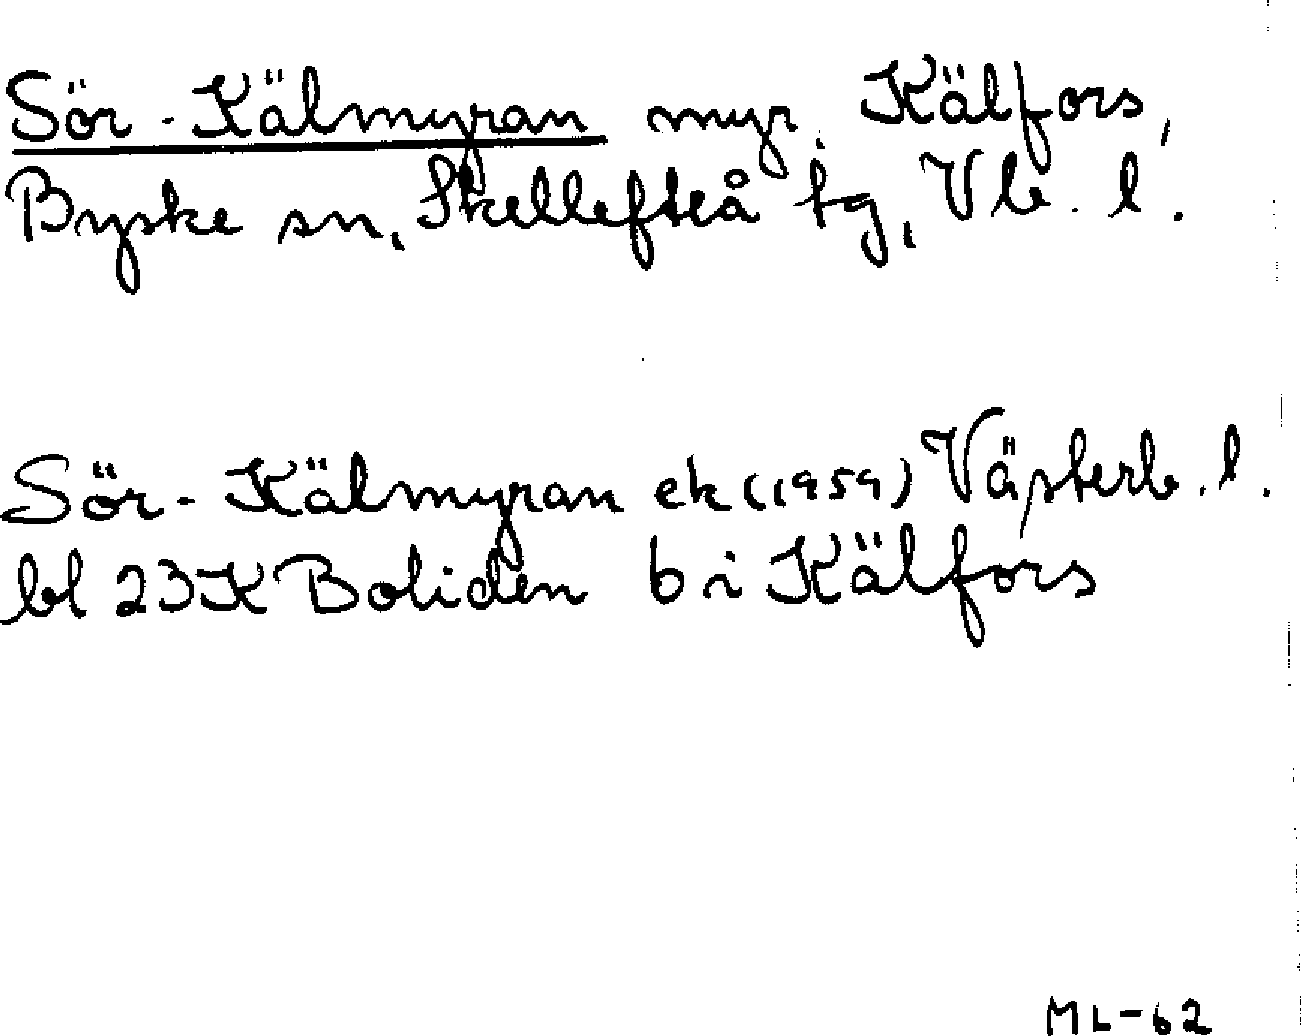 Sör-Kälmyran myr. Kälfors,
Byske sn, Skellefteå tg, Vb. l.
Sör-Kälmyran ek (1959) Västerb. l.
bl 23K Boliden b i Kälfors
ML-62